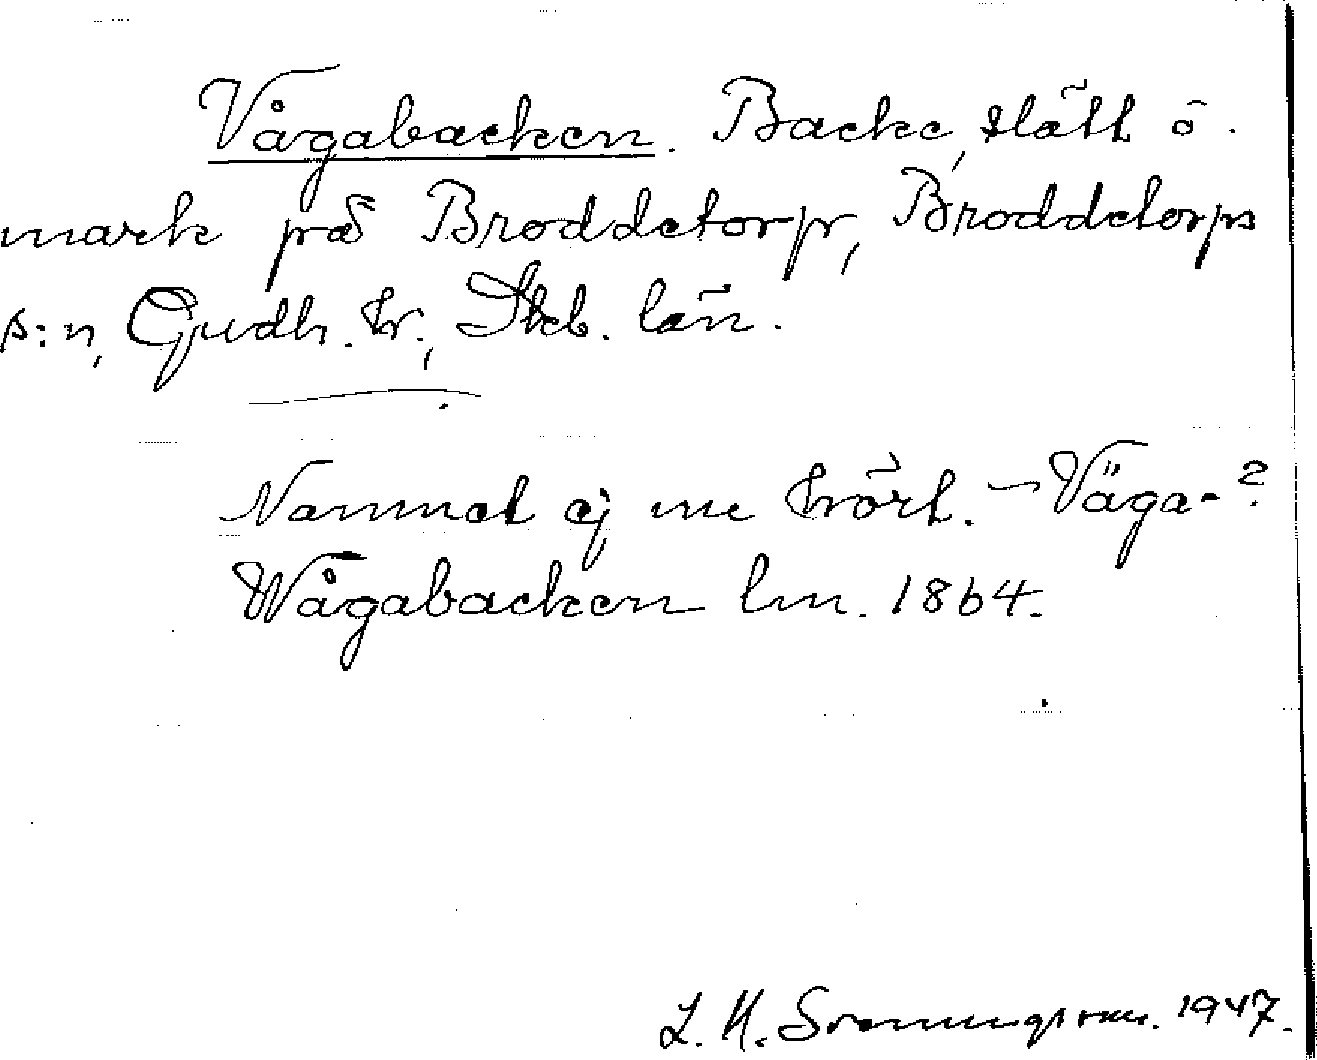 Vågabacken. Backe, slätt o.
mark på Broddetorp, Broddetorps
s:n, Gudh. hr., Skb. län.
Namnet ej me hört. – Väga-?
Wågabacken lm. 1864.
L. H. 1947.